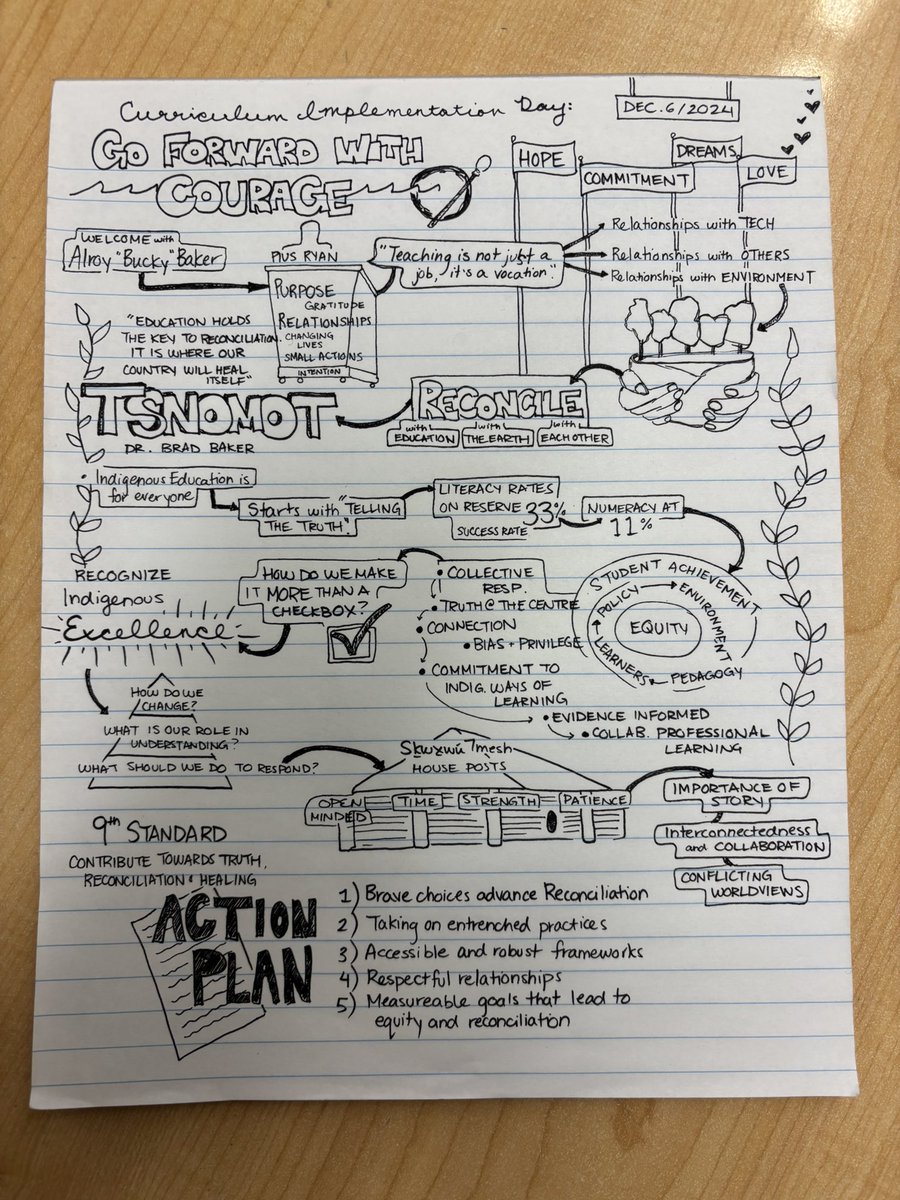 Curriculum Implementation Day:
DEC. 6/2024
GO FORWARD WITH
COURAGE
HOPE
COMMITMENT
DREAMS
LOVE
WELCOME with
Alroy "Bucky" Baker
PIUS RYAN
PURPOSE
GRATITUDE
RELATIONSHIPS
CHANGING
LIVES
SMALL ACTIONS
INTENTION
"Teaching is not just a
job, it's a vocation".
Relationships with TECH
Relationships with OTHERS
Relationships with ENVIRONMENT
"EDUCATION HOLDS
THE KEY TO RECONCILIATION.
IT IS WHERE OUR
COUNTRY WILL HEAL
ITSELF"
RECONCILE
with
EDUCATION
with
THE EARTH
with
EACH OTHER
TSNOMOT
DR. BRAD BAKER
• Indigenous Education is
for everyone
Starts with "TELLING
THE TRUTH".
LITERACY RATES
ON RESERVE 33%
SUCCESS RATE
NUMERACY AT
11%
STUDENT ACHIEVEMENT
POLICY
ENVIRONMENT
PEDAGOGY
LEARNERS
EQUITY
• COLLECTIVE
RESP.
• TRUTH @ THE CENTRE
• CONNECTION
• BIAS + PRIVILEGE
• COMMITMENT TO
INDIG. WAYS OF
LEARNING
• EVIDENCE INFORMED
• COLLAB. PROFESSIONAL
LEARNING
HOW DO WE MAKE
IT MORE THAN A
CHECKBOX?
RECOGNIZE
Indigenous
Excellence
HOW DO WE
CHANGE?
WHAT IS OUR ROLE IN
UNDERSTANDING?
WHAT SHOULD WE DO TO RESPOND?
Sḵwx̱wú7mesh
HOUSE POSTS
OPEN
MINDED
TIME
STRENGTH
PATIENCE
IMPORTANCE OF
STORY
Interconnectedness
and COLLABORATION
CONFLICTING
WORLDVIEWS
9th STANDARD
CONTRIBUTE TOWARDS TRUTH,
RECONCILIATION & HEALING
ACTION
PLAN
1) Brave choices advance Reconciliation
2) Taking on entrenched practices
3) Accessible and robust frameworks
4) Respectful relationships
5) Measureable goals that lead to
equity and reconciliation